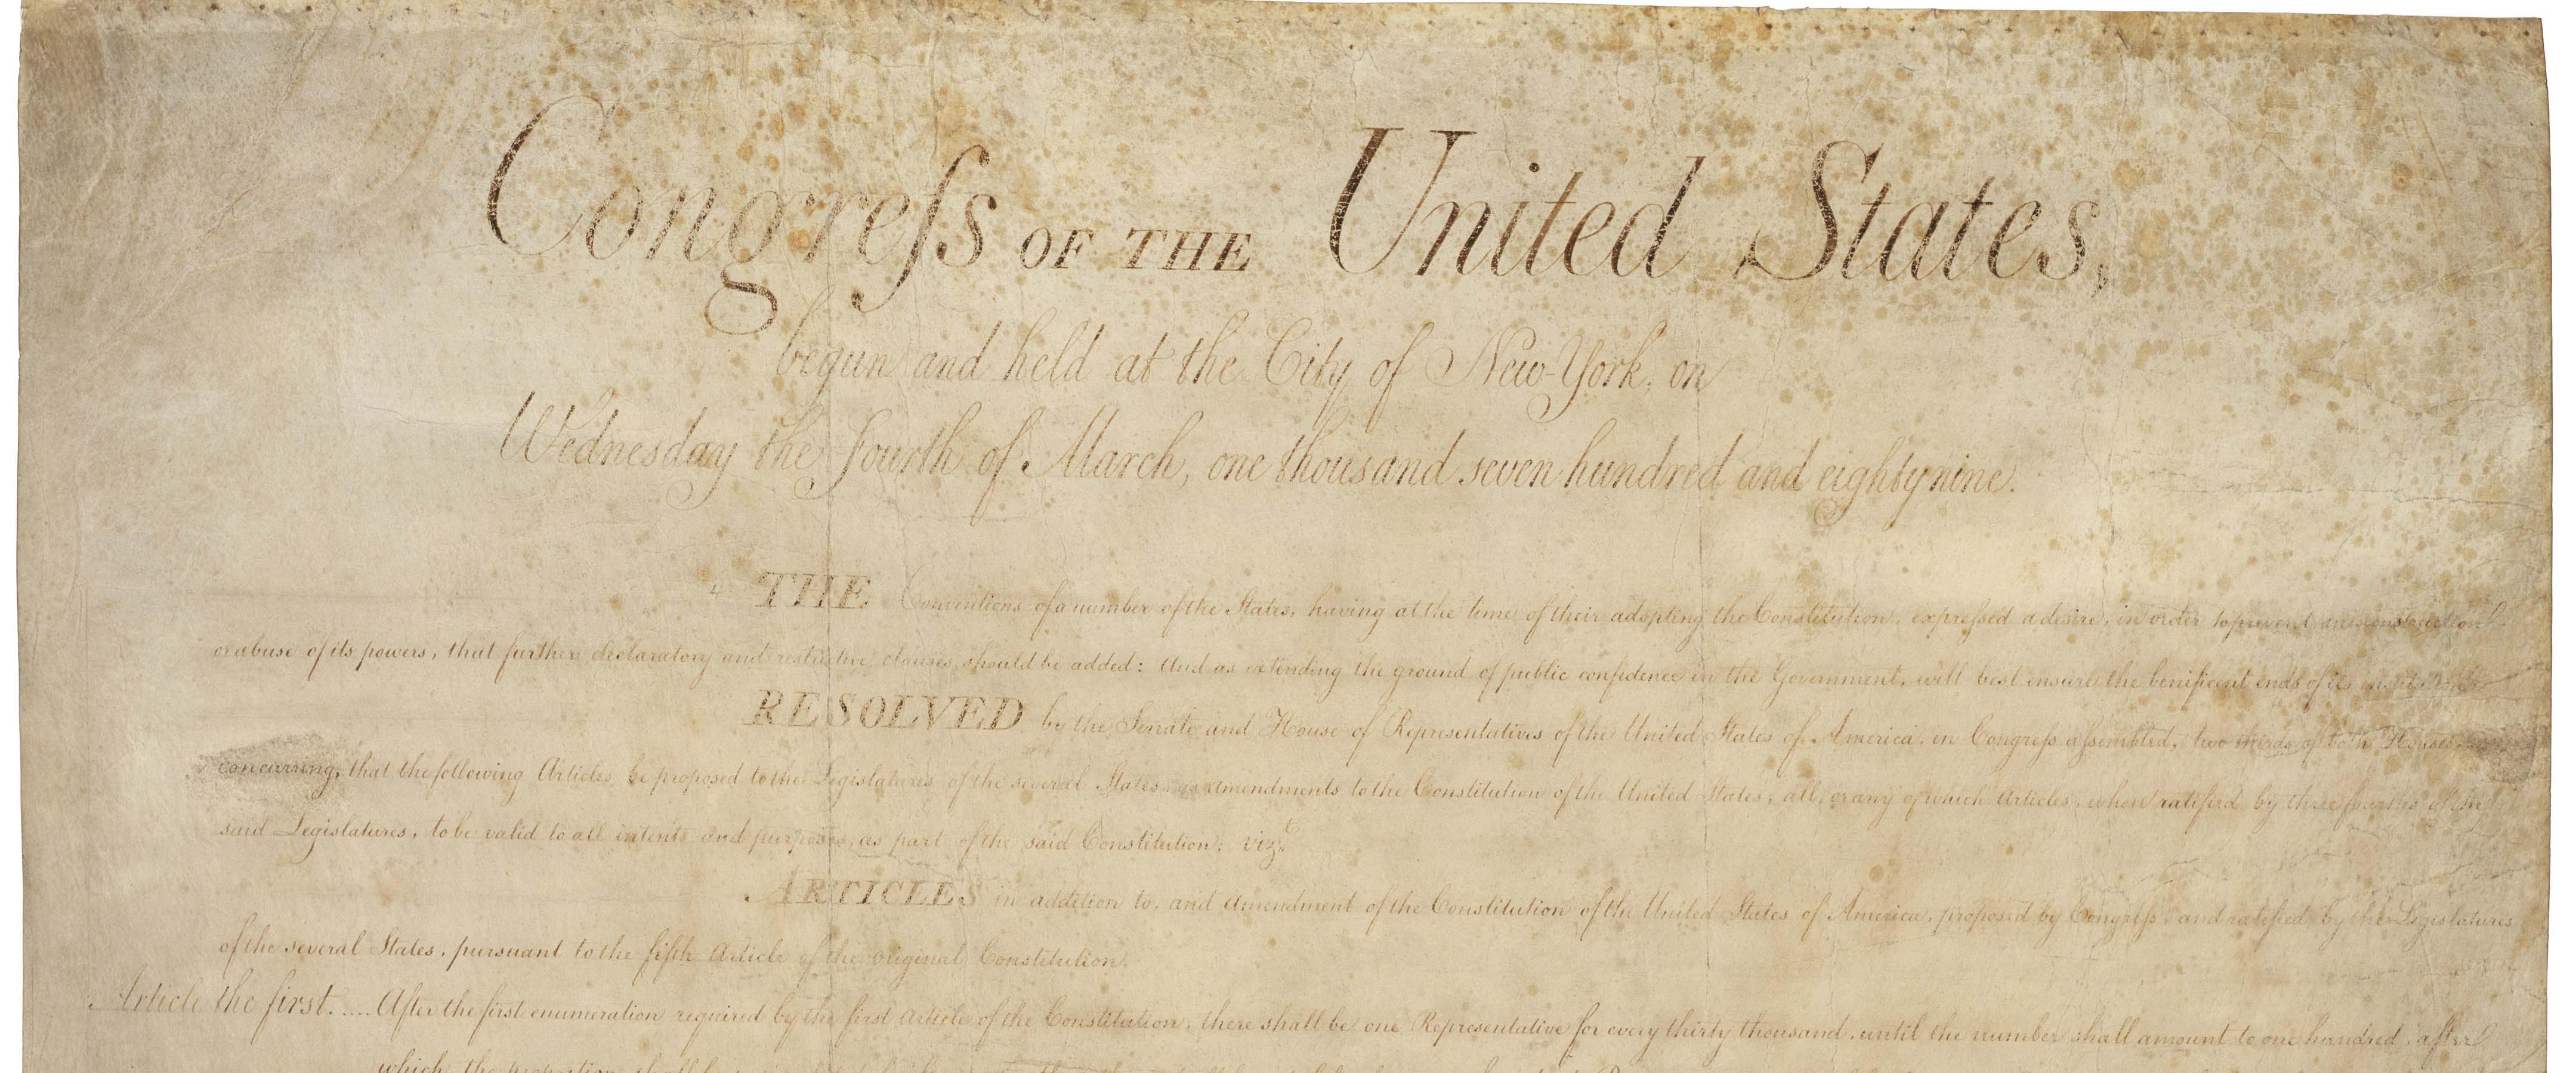 Congreſs OF THE United States,
begun and held at the City of New-York, on
Wednesday the fourth of March, one thousand seven hundred and eighty nine.
THE Conventions of a number of the States, having at the time of their adopting the Constitution, expreſsed a desire, in order to prevent misconstruction
or abuse of its powers, that further declaratory and restrictive clauses should be added: And as extending the ground of public confidence in the Government, will best ensure the benificent ends of its
RESOLVED by the Senate and House of Representatives of the United States of America, in Congreſs aſsembled, two thirds of both Houses
concurring, that the following Articles be proposed to the Legislatures of the several States, as amendments to the Constitution of the United States, all, or any of which Articles, when ratified by three fourths of the
said Legislatures, to be valid to all intents and purposes, as part of the said Constitution; vizt
ARTICLES in addition to, and amendment of the Constitution of the United States of America, proposed by Congreſs, and ratified by the Legislatures
of the several States, pursuant to the fifth Article of the original Constitution.
Article the first. .... After the first enumeration required by the first Article of the Constitution, there shall be one Representative for every thirty thousand, until the number shall amount to one hundred, after
which the proportion shall be